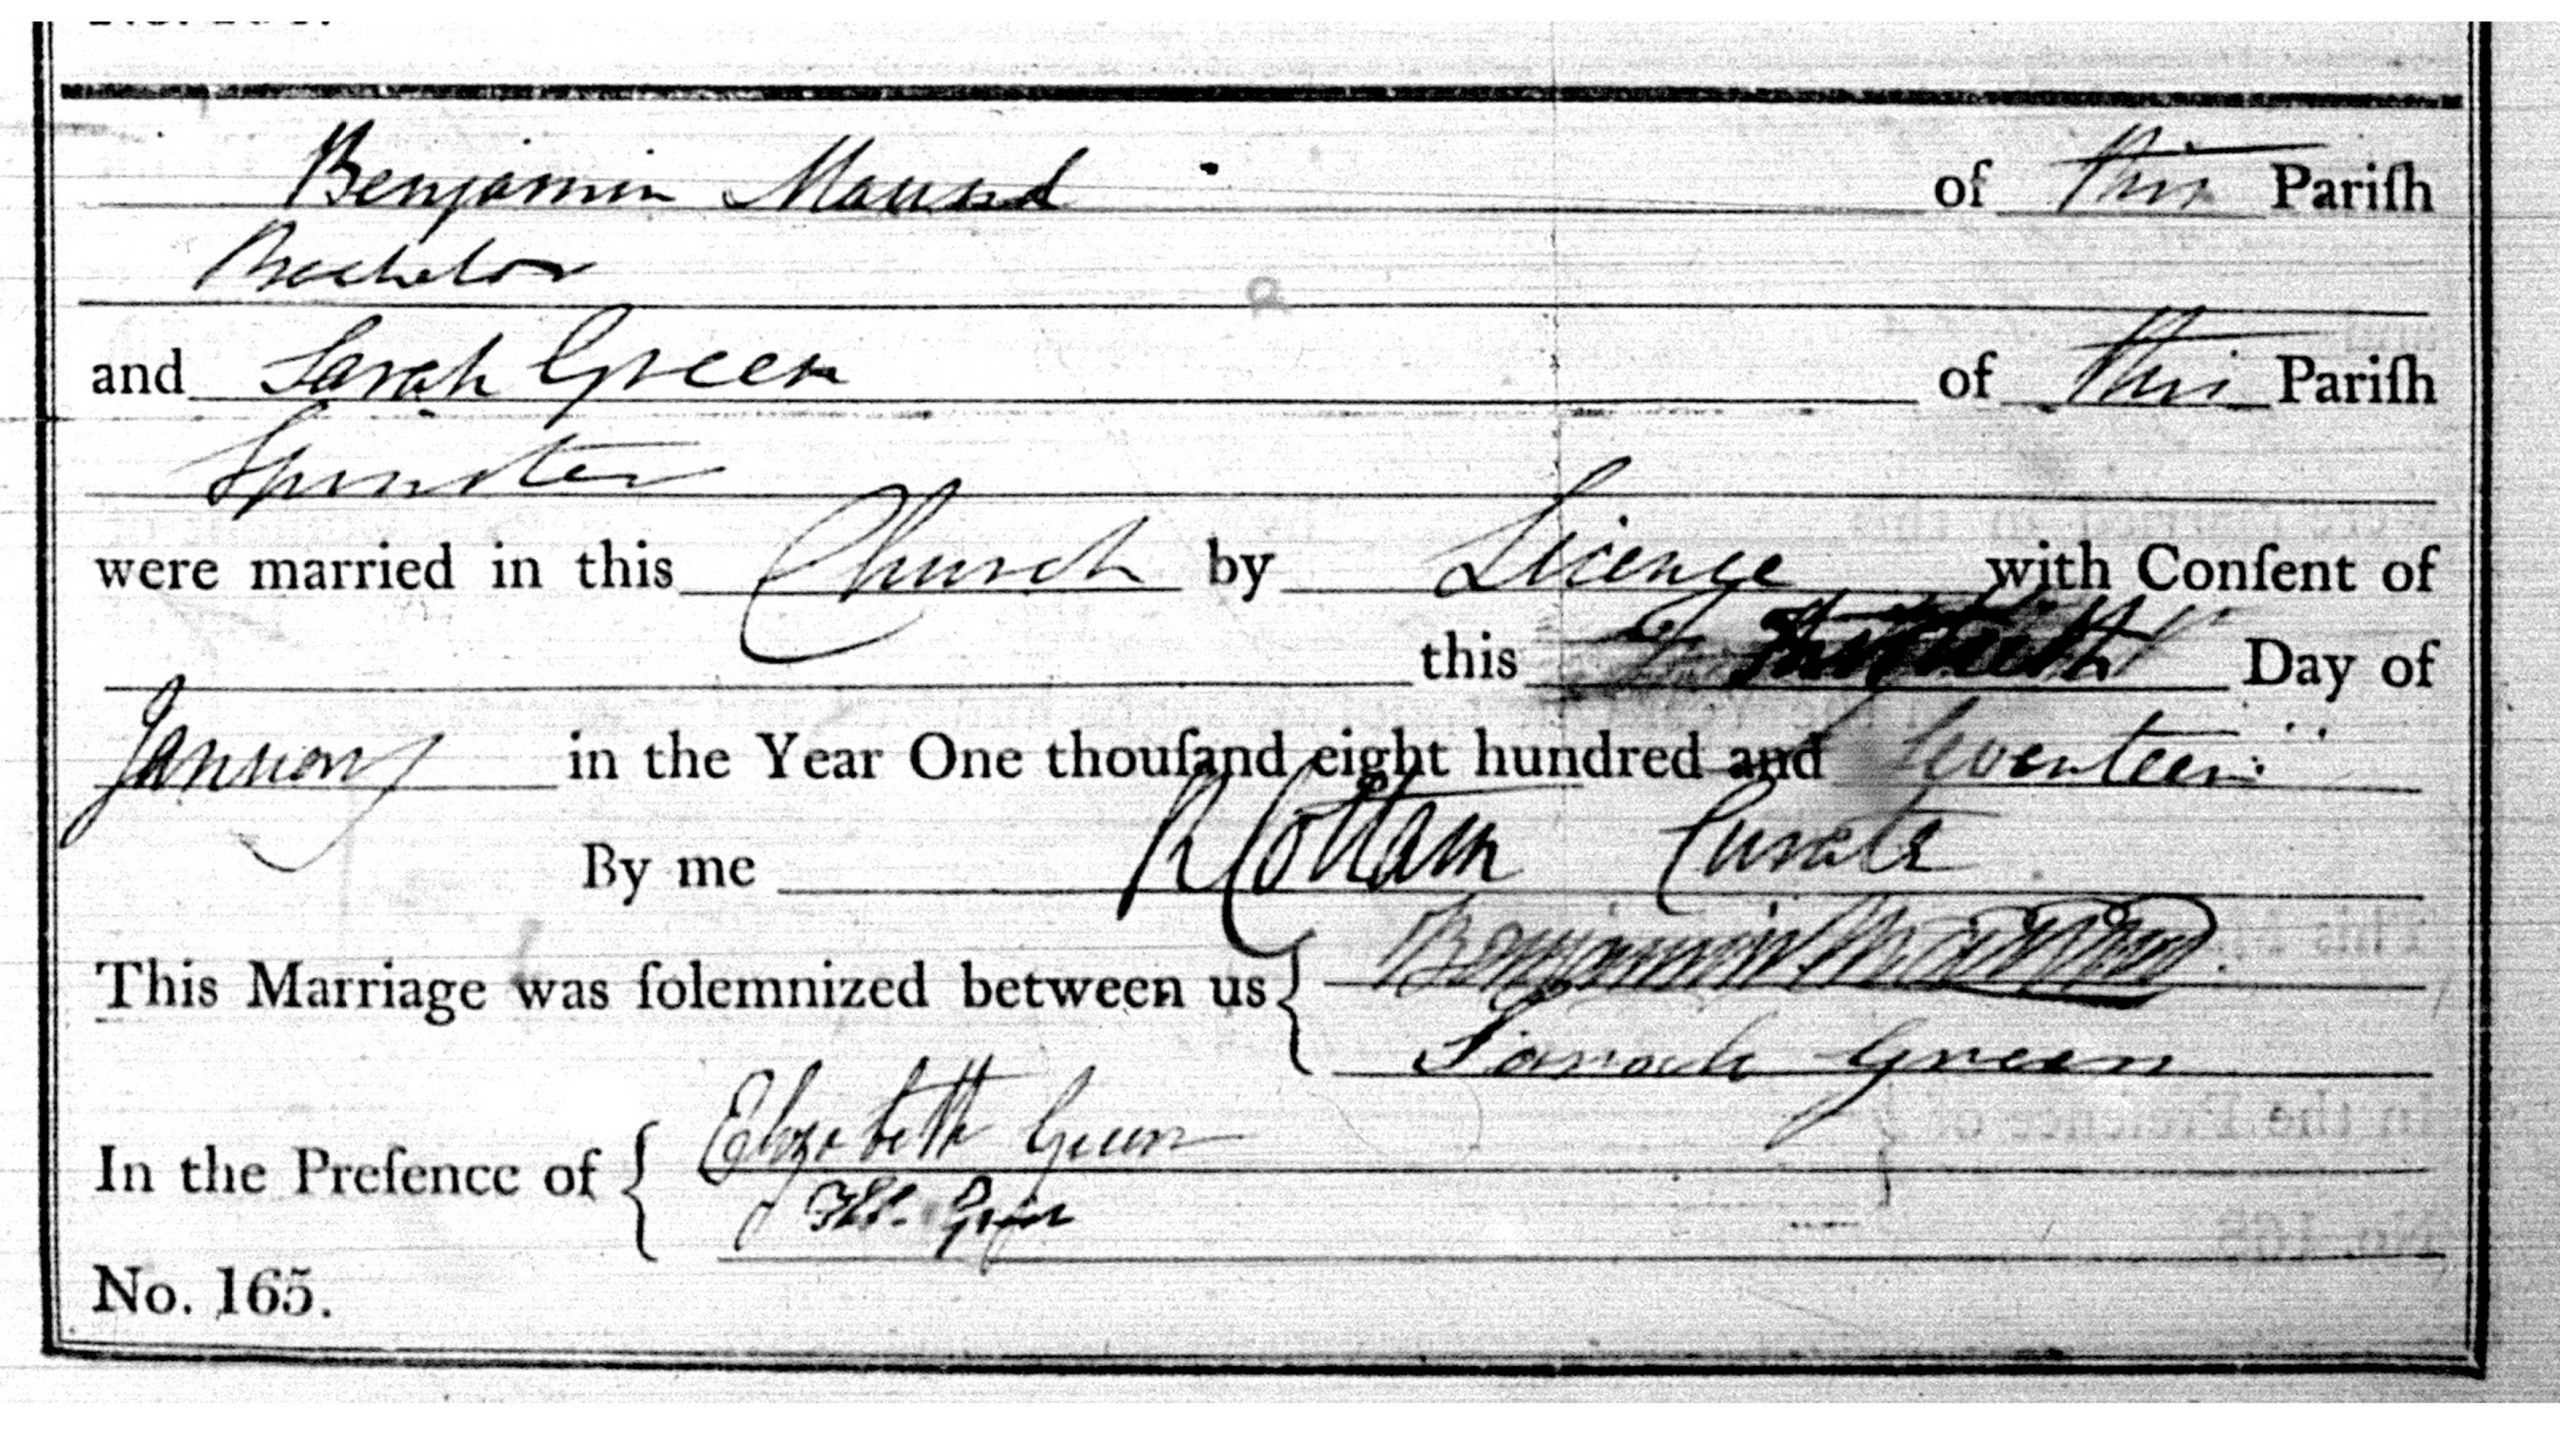 Benjamin Maund of this Pariſh
Bachelor
and Sarah Green of this Pariſh
Spinster
were married in this Church by License with Conſent of
this Day of
January in the Year One thouſand eight hundred and Seventeen
By me R Cottam Curate
This Marriage was ſolemnized between us { Benjamin Maund
Sarah Green
In the Preſence of { Elizabeth Green
Green
No. 165.